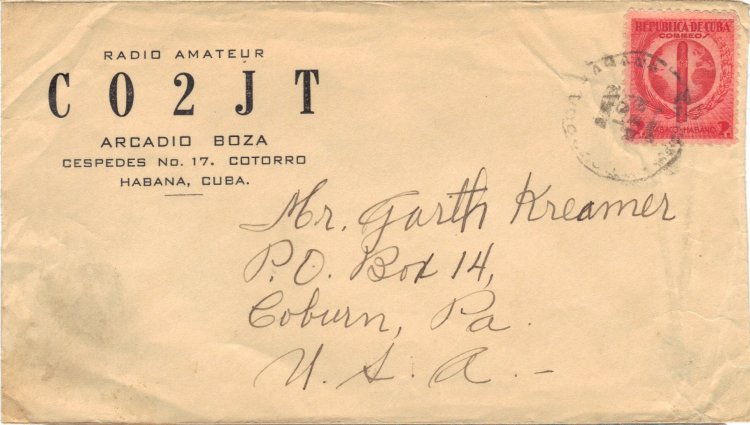 RADIO AMATEUR
CO2JT
ARCADIO BOZA
CESPEDES No. 17. COTORRO
HABANA, CUBA.
REPUBLICA DE CUBA
CORREOS
TABACO HABANO
Mr. Garth Kreamer
P.O. Box 14,
Coburn, Pa.
U. S. A. -